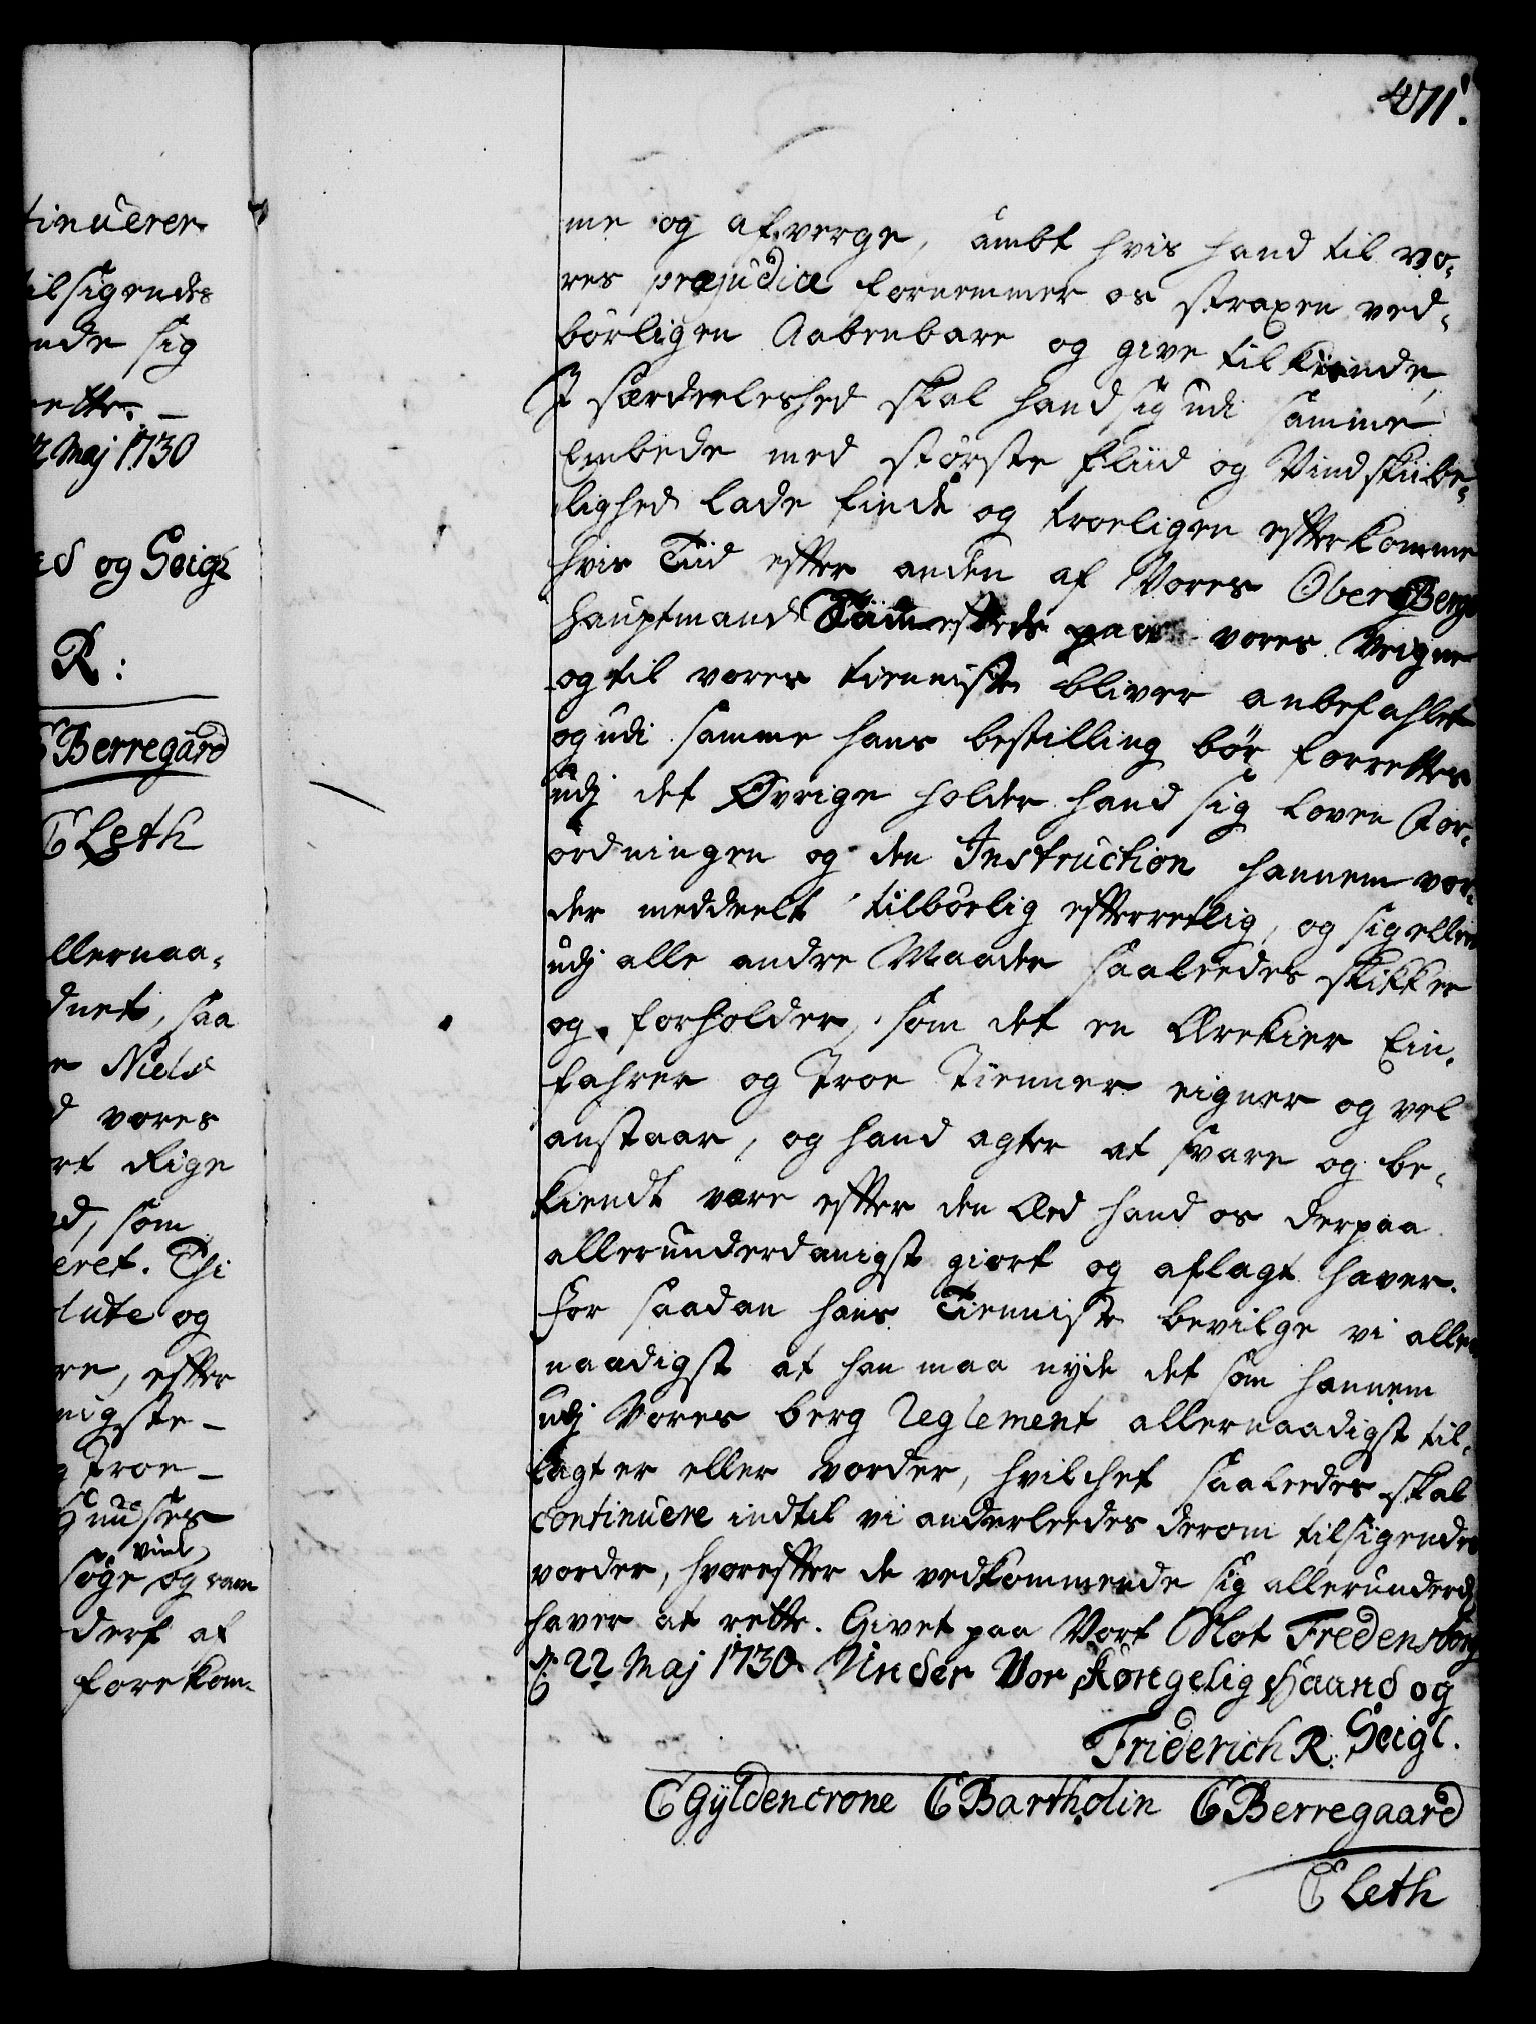 471.
tinuerer
ilsigendes
nde sig
rette. –
22 Maj 1730
og Seigl
R:
C Berregård
C Leth
llernaa-
dnet, saa
Niels
vores
rt Rige
d, som
eret. Thi
lute og
re, efter
nigste –
troe –
Huuses
vind
søge og ram
dert at
forekom-
me og afverge, ambt hvis hand til vo-
res præjudice fornemmer os straxen ved-
børligen Aabenbare og give tilkiende,
I særdeeleshed skal hand sig udi samme
Embede med største fliid og Vindskiibe-
lighed lade finde og troeligen efterkomme
hvis Tiid efter anden af Vores Ober Berg
hauptmand Sammesteds paa vores Veigne
og til vores tienniste bliver anbefahlet
og udi samme hans bestilling bør forrettes
udj det Øvrige holder hand sig Loven For-
ordningen og den Instruction hannem vor-
der meddeelt tilbørlig efterretlig, og sig ellers
udj alle andre Maader saaleedes skikker
og forholder, som det en Ærekier Ein-
fahrer og Troe Tienner eigner og vel
anstaar, og hand agter at svare og be-
kiendt være efter den Æed hand os derpaa
allerunderdanigst giort og aflagt haver.
For saadan hans Tienniste bevilge vi aller
naadigst at han maa nyde det som hannem
udj Vores berg Reglement allernaadigst til-
lagt er eller vorder, hvilchet saaleedes skal
continuere indtil vi anderleedes derom tilsigendes
vorder, hvorefter de vedkommende sig allerunderd.
haver at rette. Givet paa Vort Slot Fredensborg
d: 22 Maj 1730 Under Vor Kongelig Haand og
Friderich R. Seigl.
C Gyldencrone C Bartholin C Berregaard
C Leth